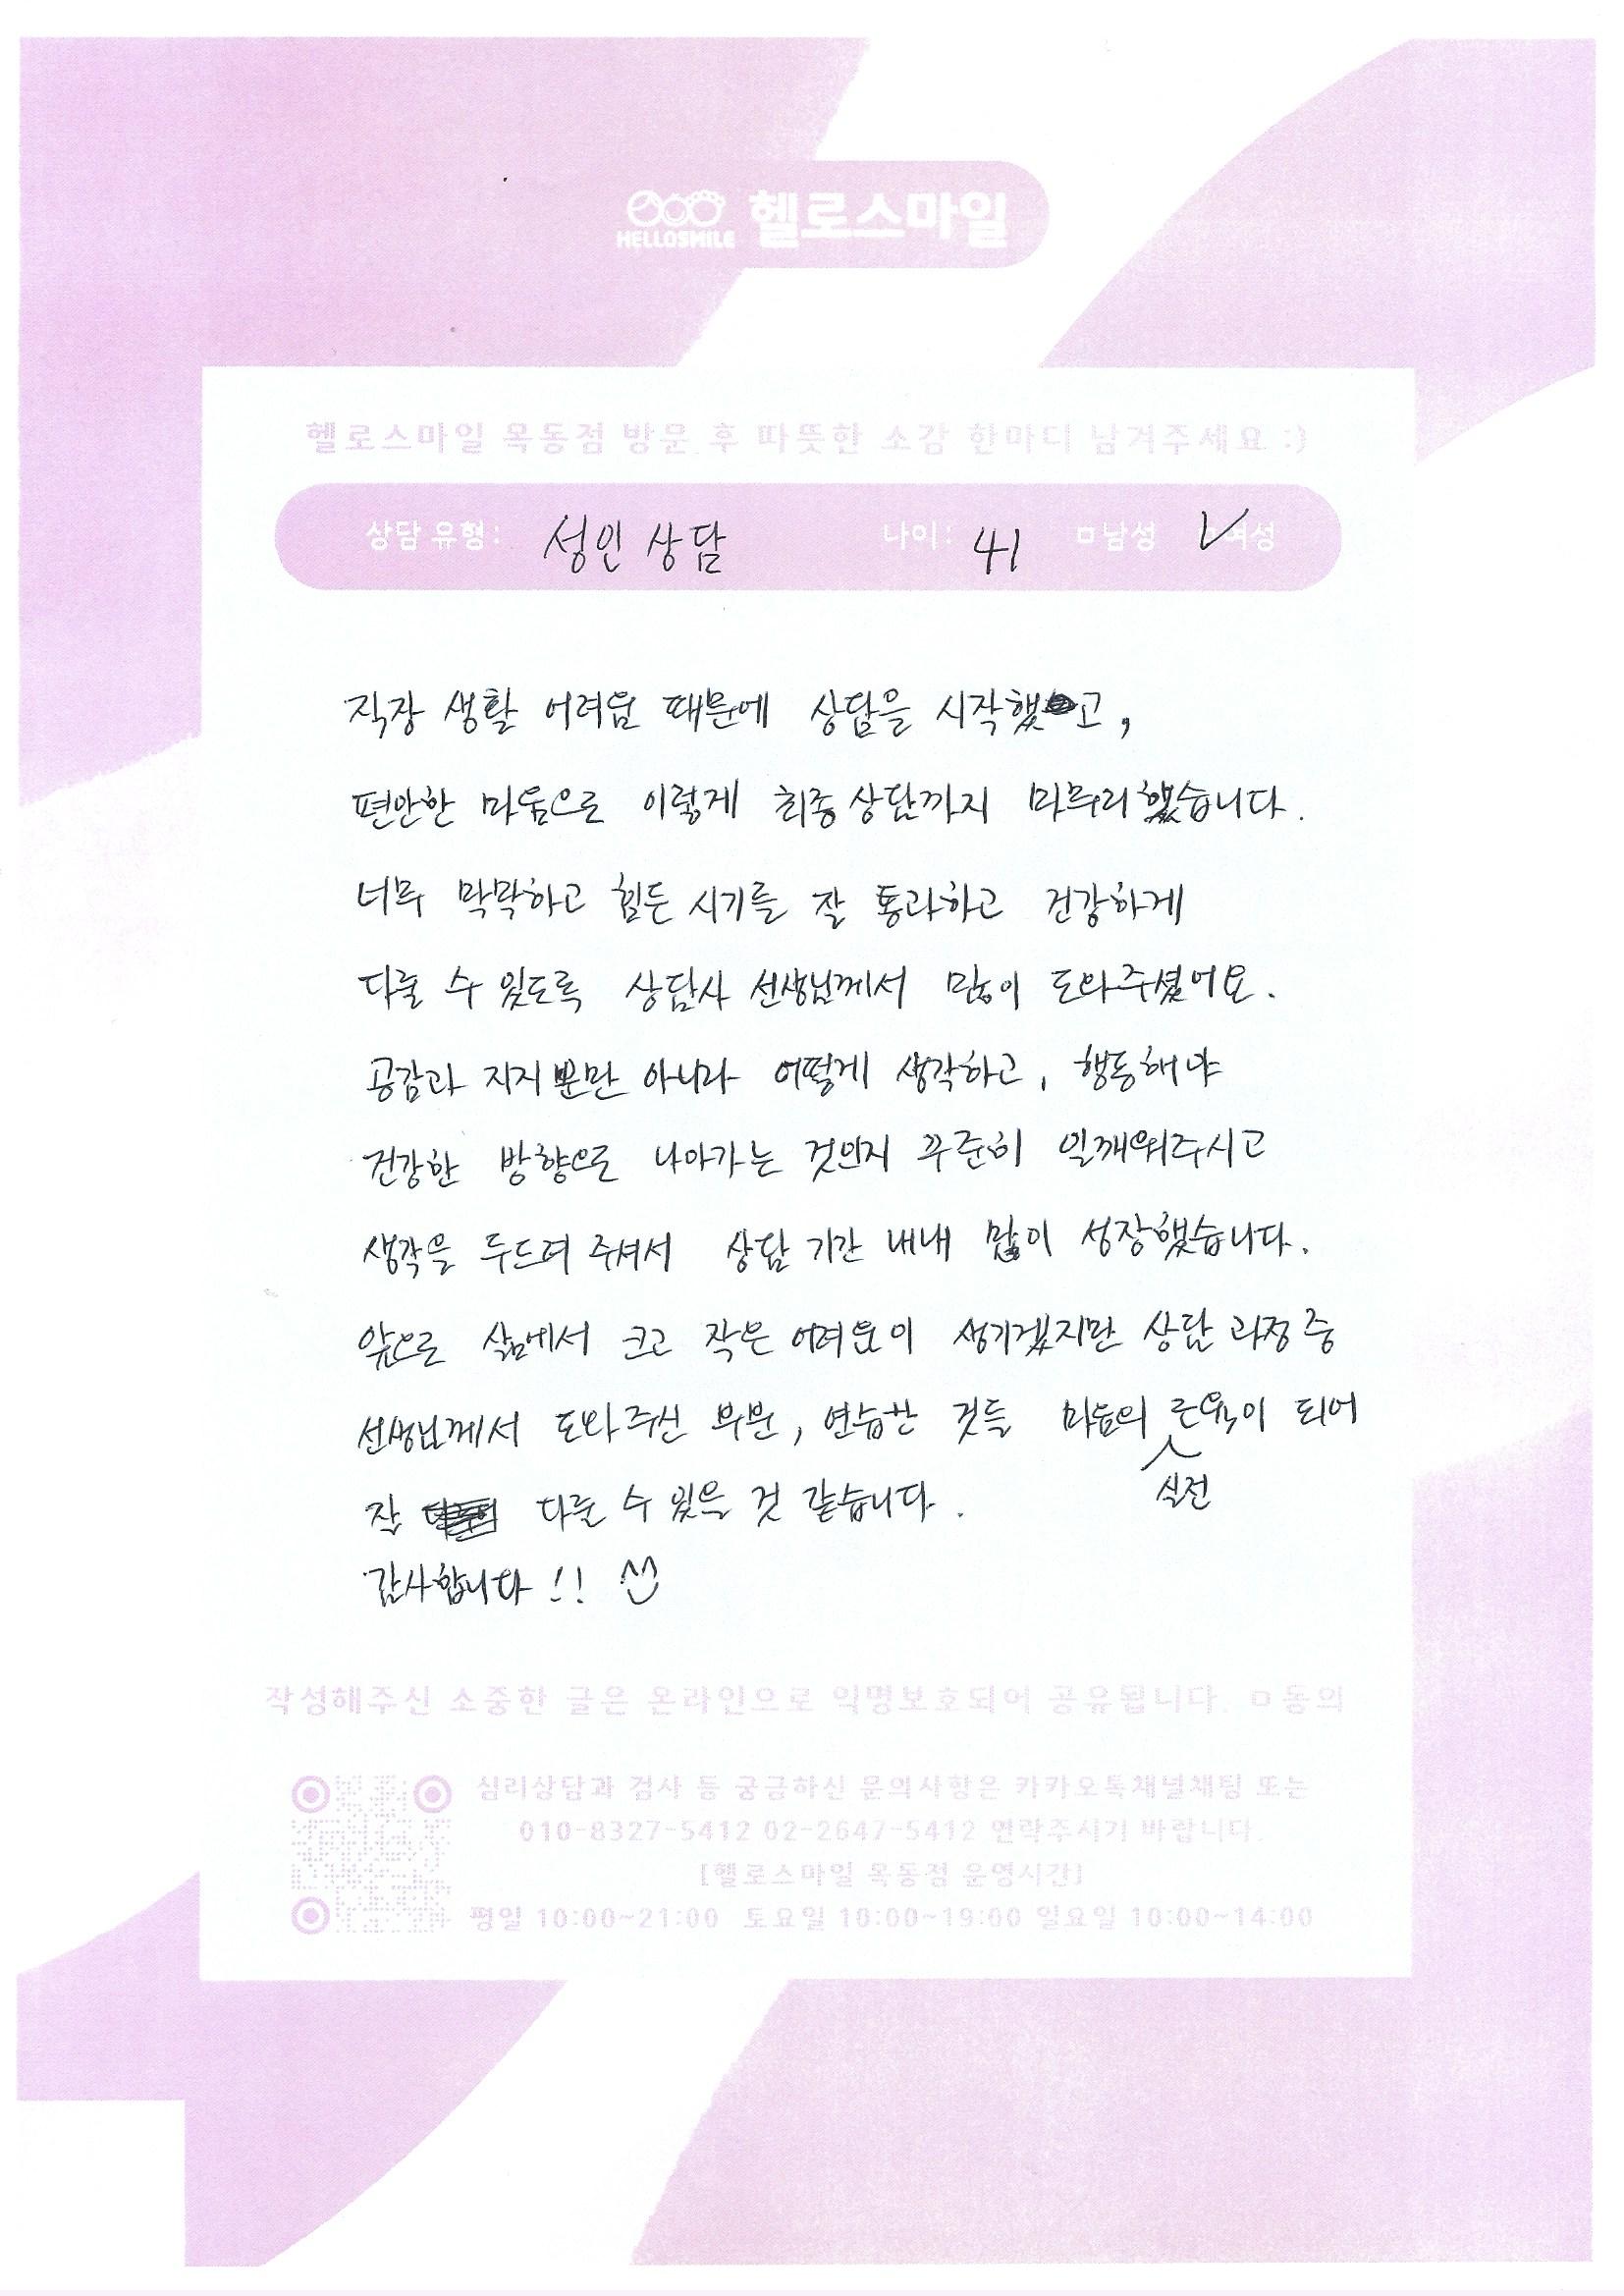 HELLOSMILE 헬로스마일
헬로스마일 목동점 방문 후 따뜻한 소감 한마디 남겨주세요 :)
상담 유형: 성인 상담 나이: 41 ㅁ남성 ✓여성
직장 생활 어려움 때문에 상담을 시작했고,
편안한 마음으로 이렇게 최종 상담까지 마무리 했습니다.
너무 막막하고 힘든 시기를 잘 통과하고 건강하게
다룰 수 있도록 상담사 선생님께서 많이 도와주셨어요.
공감과 지지 뿐만 아니라 어떻게 생각하고, 행동해야
건강한 방향으로 나아가는 것인지 꾸준히 일깨워주시고
생각을 두드려 주셔서 상담 기간 내내 많이 성장했습니다.
앞으로 삶에서 크고 작은 어려움이 생기겠지만 상담 과정 중
선생님께서 도와주신 부분, 연습한 것들 마음의 근육이 되어
실전
잘 다룰 수 있을 것 같습니다.
감사합니다!!
작성해주신 소중한 글은 온라인으로 익명보호되어 공유됩니다. ㅁ동의
심리상담과 검사 등 궁금하신 문의사항은 카카오톡채널채팅 또는
010-8327-5412 02-2647-5412 연락주시기 바랍니다.
[헬로스마일 목동점 운영시간]
평일 10:00~21:00 토요일 10:00~19:00 일요일 10:00~14:00